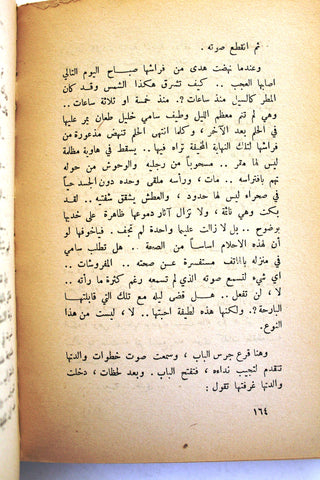 ثم انقطع صوته .
وعندما نهضت هدى من فراشها صباح اليوم التالي
اصابها العجب .. كيف تشرق هكذا الشمس وقد كان
المطر كالسيل منذ ساعات ؟.. منذ خمسة او ثلاثة ساعات ..
وهي لم تنم معظم الليل وطيف سامي خليل طعان يمر عليها
في الحلم بعد الآخر ، وكلما انتهى الحلم تنهض مذعورة من
فراشها لتلك النهاية المخيفة تراه فيها .. يسقط في هاوية مظلمة
ليس لها مقر .. مسحوباً من رجليه والوحوش من حوله
تهم بافتراسه .. مات ، ورأسه ملقى وحده دون الجسد حياً
في صحراء ليس لها حدود ، والعطش يشقق شفتيه .. لقد
بكت وهي نائمة ، ولا تزال آثار دموعها ظاهرة على خديها
بوضوح .. بل لا زالت عليها واحدة لم تجف . فياخوفها لو
أن لهذه الاحلام اساساً من الصحة .. هل تطلب سامي
في منزله بالهاتف مستفسرة عن صحته .. المفروشات ..
اي شيء لتسمع صوته الذي لم تسمعه رغم كثرة ما رأته ..
لا ، لن تفعل .. هل قضى ليله مع تلك التي قابلتها
البارحة ؟. ولكنها هذه لطيفة احبتها .. لا ، ليست من هذا
النوع.
وهنا قرع جرس الباب ، وسمعت صوت خطوات والدتها
تتقدم لتجيب نداءه ، فتفتح الباب . وبعد لحظات ، دخلت
والدتها غرفتها تقول :
١٦٤